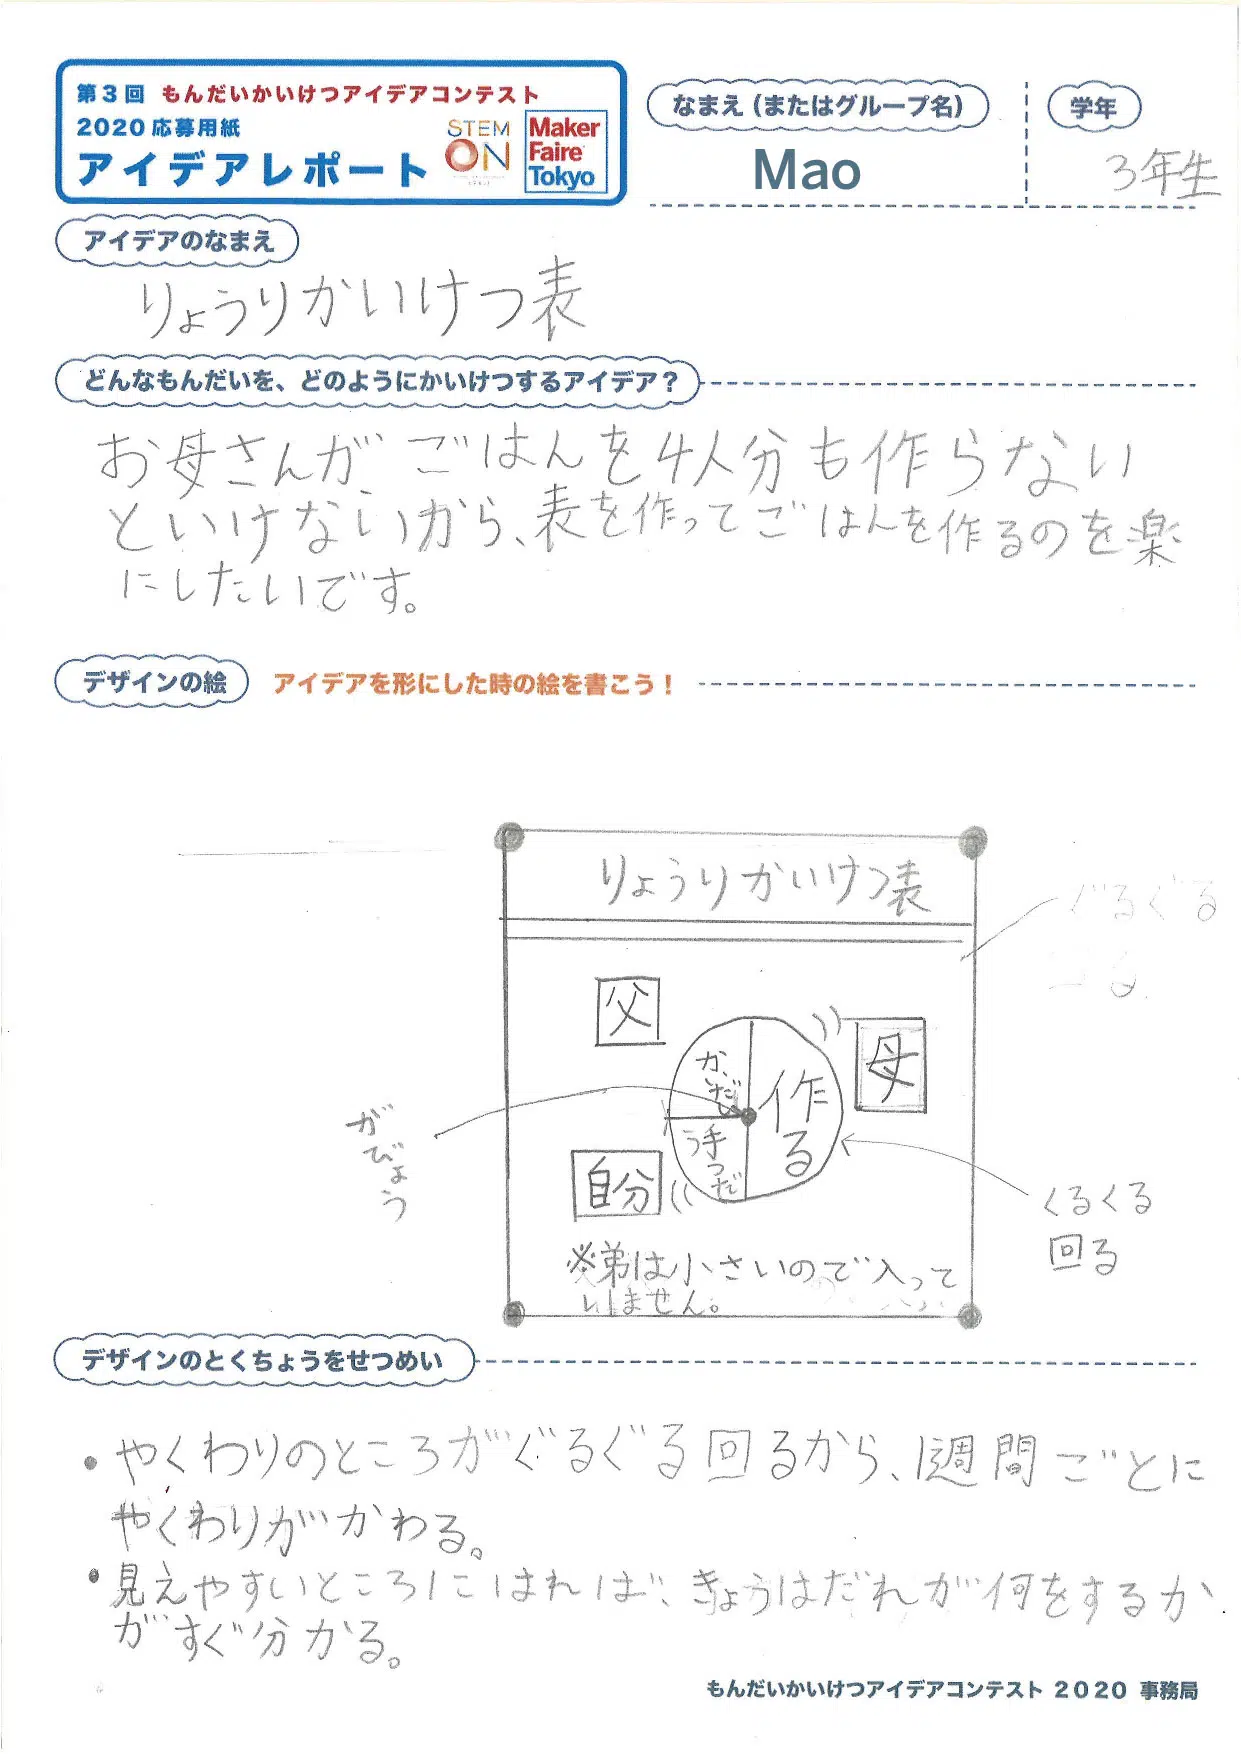 第3回 もんだいかいけつアイデアコンテスト
2020応募用紙
アイデアレポート
STEM
ON
Maker
Faire
Tokyo
なまえ(またはグループ名)
Mao
学年
3年生
アイデアのなまえ
りょうりかいけつ表
どんなもんだいを、どのようにかいけつするアイデア?
お母さんがごはんを4人分も作らない
といけないから、表を作ってごはんを作るのを楽
にしたいです。
デザインの絵
アイデアを形にした時の絵を書こう!
りょうりかいけつ表
ぐるぐる
父
母
作る
手つだう
自分
がびょう
くるくる
回る
※弟は小さいので入って
いません。
デザインのとくちょうをせつめい
・やくわりのところがぐるぐる回るから、1週間ごとに
やくわりがかわる。
・見えやすいところにはれば、きょうはだれが何をするか
がすぐ分かる。
もんだいかいけつアイデアコンテスト 2020 事務局